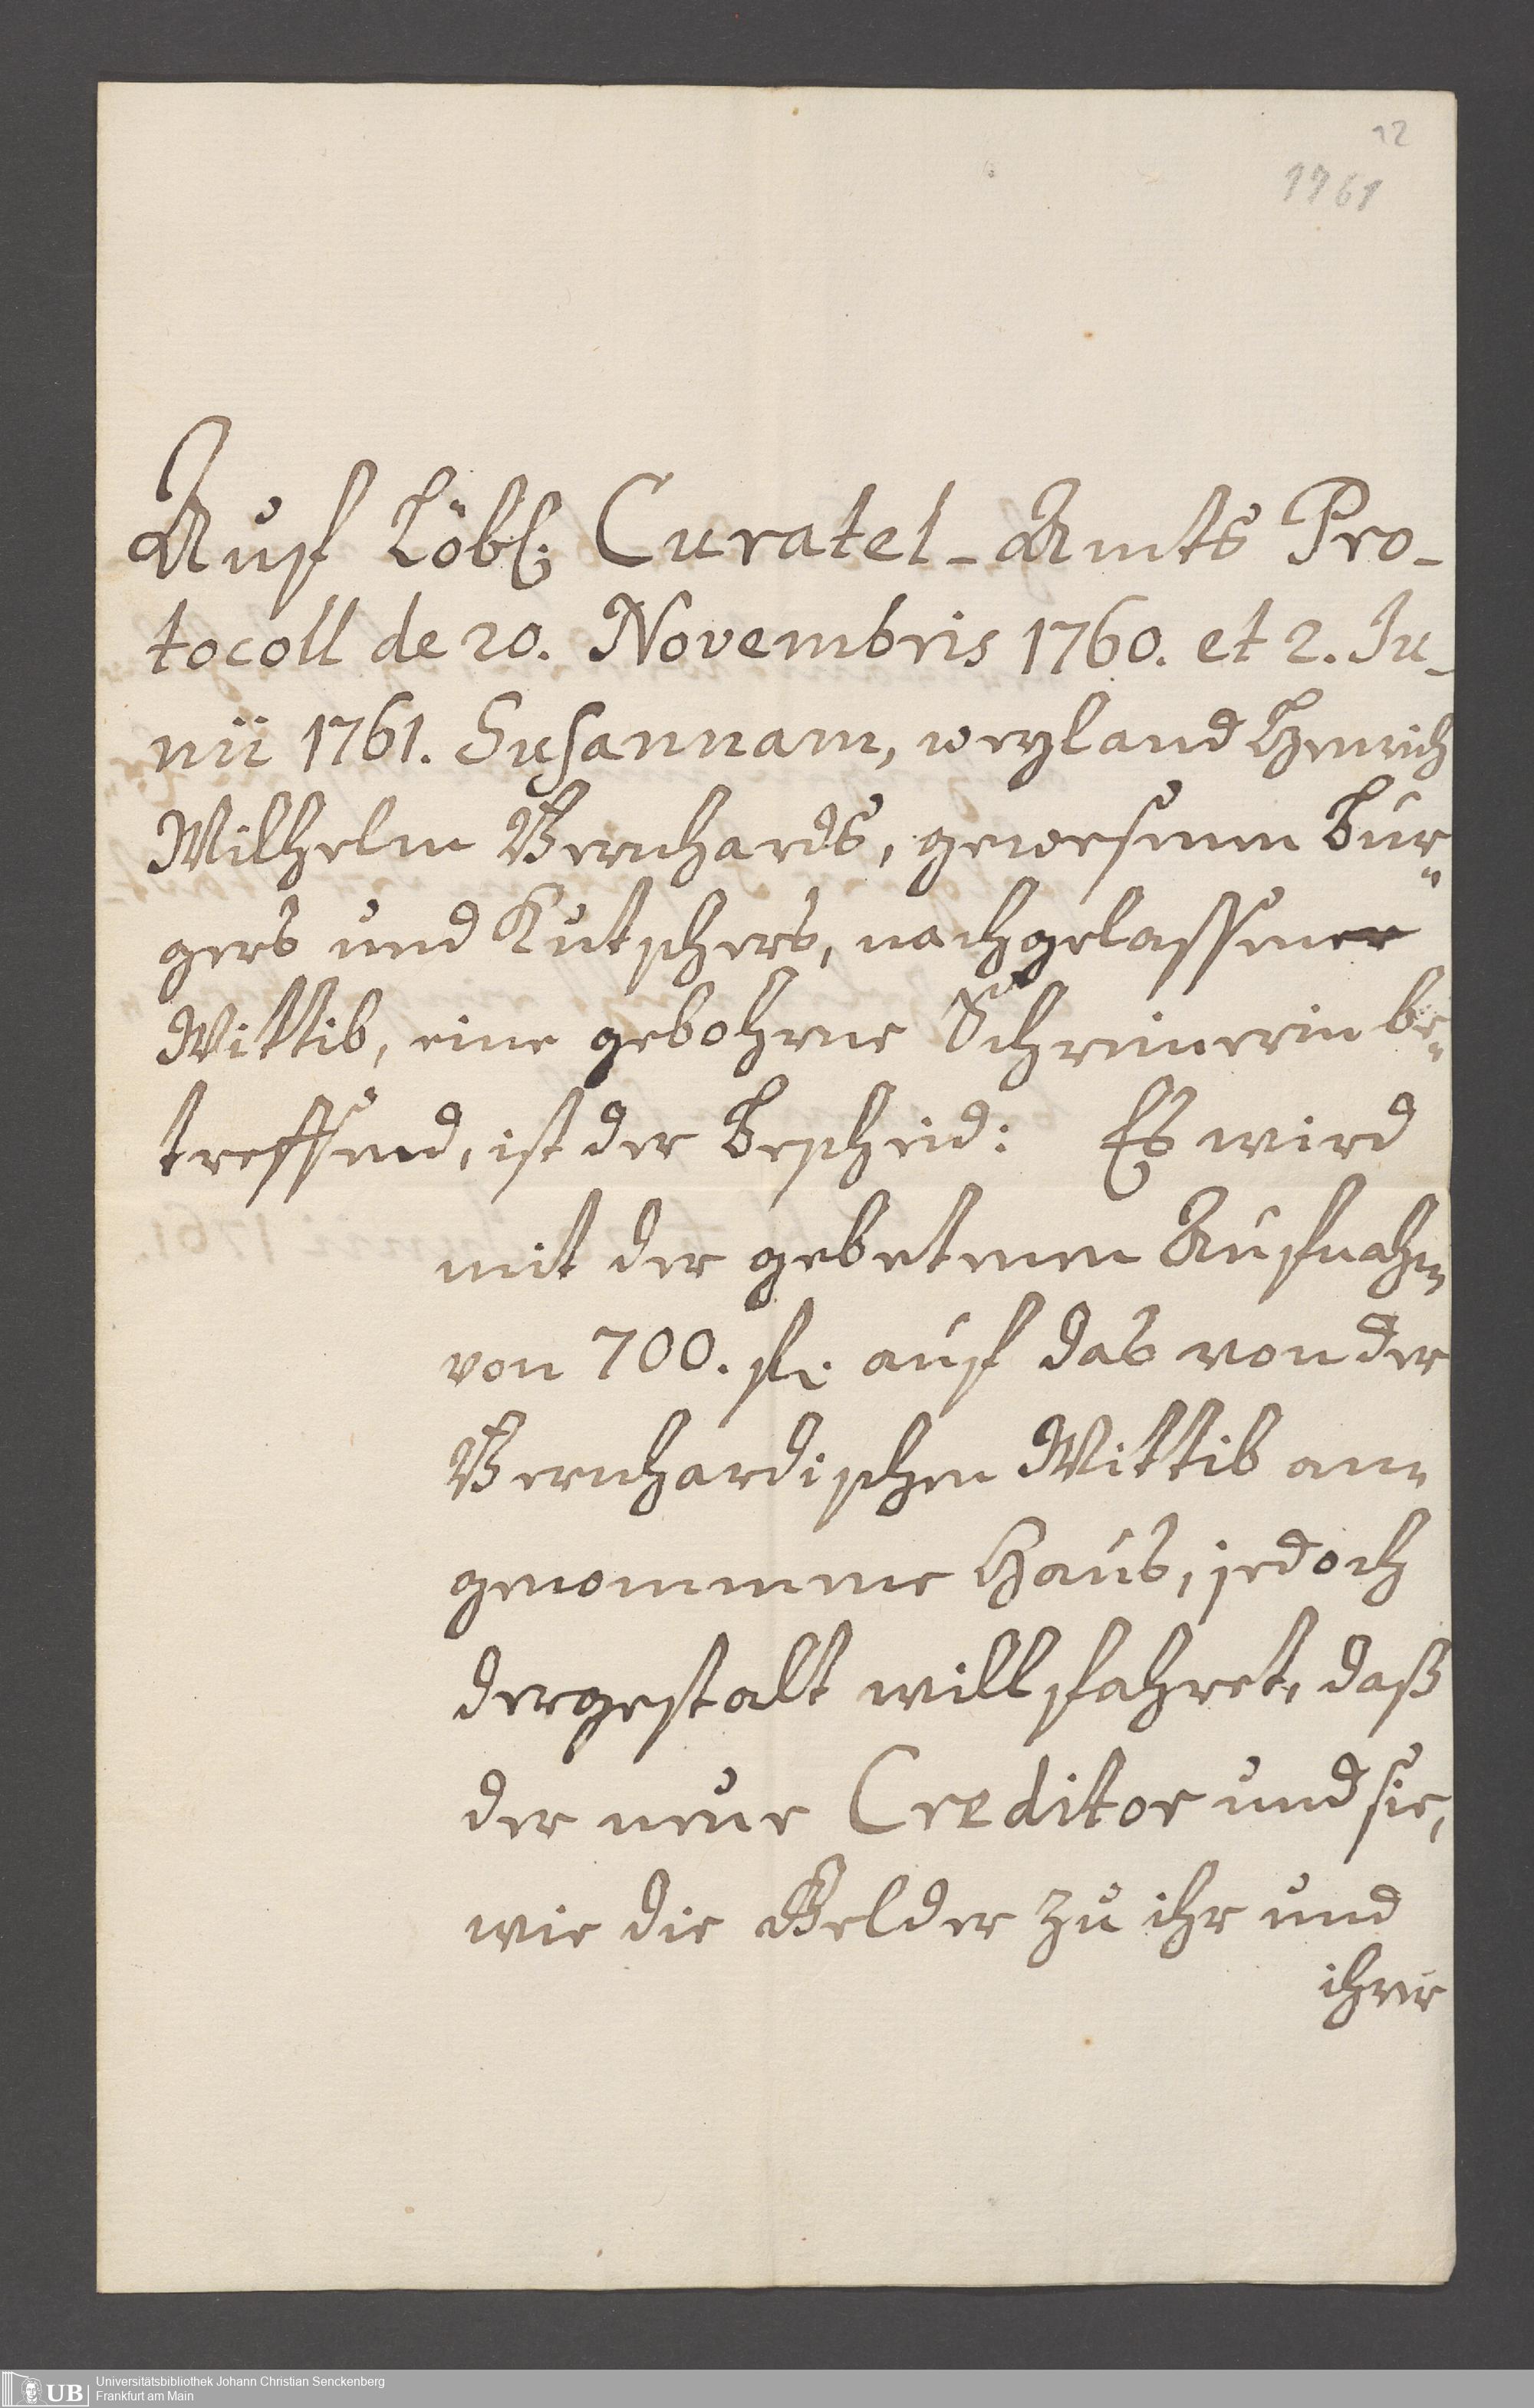 12
1761
Auf Löbl. Curatel-Amts Pro-
tocoll de 20. Novembris 1760. et 2. Ju-
nii 1761. Susannam, weyland Henrich
Wilhelm Bernhards, gewesenen Bur-
gers und Kutschers, nachgelassener
Wittib, eine gebohrne Schreinerin be-
treffend, ist der Bescheid: Es wird
mit der gebetenen Aufnahm
von 700. fl. auf das von der
Bernhardischen Wittib an-
genommene Haus, jedoch
dergestalt willfahret, daß
der neue Creditor und sie,
wie die Gelder zu ihr und
ihrer
UB
Universitätsbibliothek Johann Christian Senckenberg
Frankfurt am Main